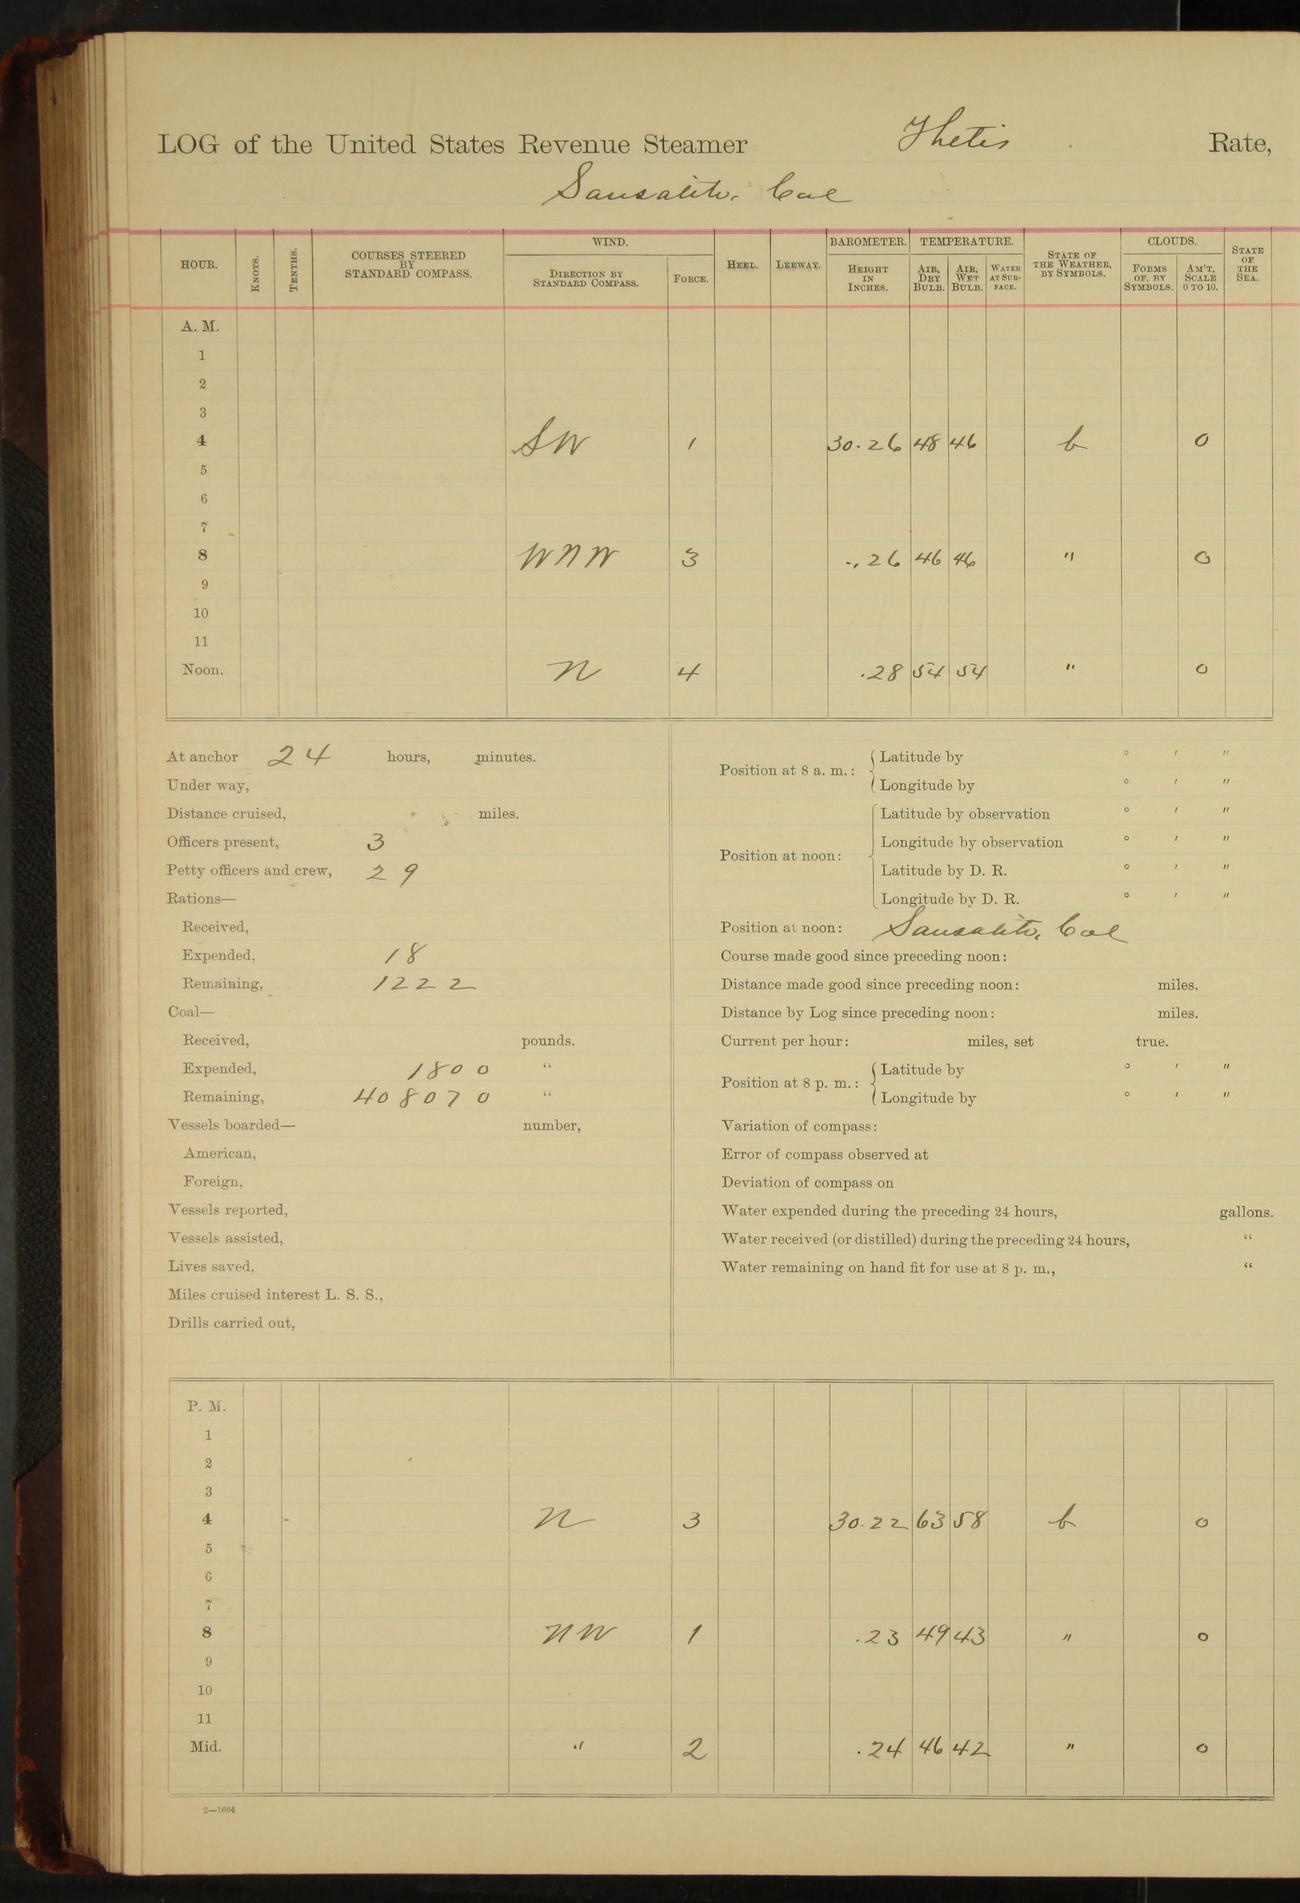 LOG of the United States Revenue Steamer Thetis Rate,
Sausalito, Cal
HOUR. KNOTS. TENTHS. COURSES STEERED BY STANDARD COMPASS. WIND. DIRECTION BY STANDARD COMPASS. FORCE. HEEL. LEEWAY. BAROMETER. HEIGHT IN INCHES. TEMPERATURE. AIR, DRY BULB. AIR, WET BULB. WATER AT SURFACE. STATE OF THE WEATHER, BY SYMBOLS. CLOUDS. FORMS OF, BY SYMBOLS. AM'T, SCALE 0 TO 10. STATE OF THE SEA.
A. M.
1
2
3
4 SW 1 30.26 48 46 b 0
5
6
7
8 WNW 3 .26 46 46 " 0
9
10
11
Noon. N 4 .28 54 54 " 0
At anchor 24 hours, minutes.
Under way,
Distance cruised, miles.
Officers present, 3
Petty officers and crew, 29
Rations—
Received,
Expended, 18
Remaining, 1222
Coal—
Received, pounds.
Expended, 1800 "
Remaining, 408070 "
Vessels boarded— number,
American,
Foreign,
Vessels reported,
Vessels assisted,
Lives saved,
Miles cruised interest L. S. S.,
Drills carried out,
Position at 8 a. m.: Latitude by ° ′ ″
Longitude by ° ′ ″
Position at noon: Latitude by observation ° ′ ″
Longitude by observation ° ′ ″
Latitude by D. R. ° ′ ″
Longitude by D. R. ° ′ ″
Position at noon: Sausalito, Cal
Course made good since preceding noon:
Distance made good since preceding noon: miles.
Distance by Log since preceding noon: miles.
Current per hour: miles, set true.
Position at 8 p. m.: Latitude by ° ′ ″
Longitude by ° ′ ″
Variation of compass:
Error of compass observed at
Deviation of compass on
Water expended during the preceding 24 hours, gallons.
Water received (or distilled) during the preceding 24 hours, "
Water remaining on hand fit for use at 8 p. m., "
P. M.
1
2
3
4 N 3 30.22 63 58 b 0
5
6
7
8 NW 1 .23 49 43 " 0
9
10
11
Mid. " 2 .24 46 42 " 0
2—1664